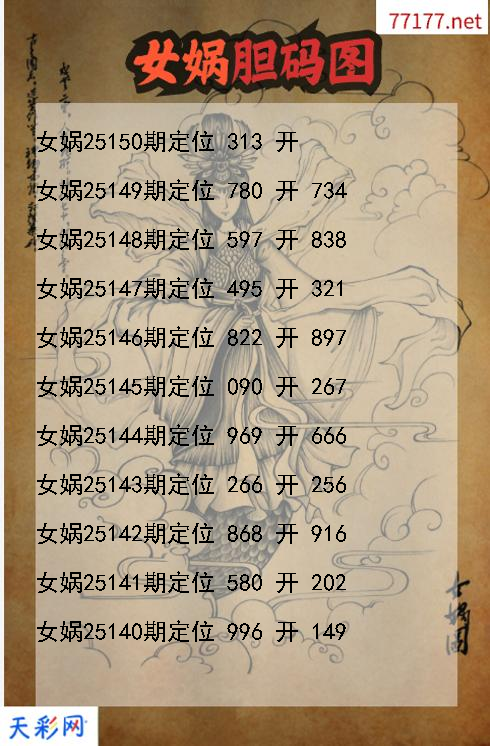 77177.net
女娲胆码图
女娲25150期定位 313 开
女娲25149期定位 780 开 734
女娲25148期定位 597 开 838
女娲25147期定位 495 开 321
女娲25146期定位 822 开 897
女娲25145期定位 090 开 267
女娲25144期定位 969 开 666
女娲25143期定位 266 开 256
女娲25142期定位 868 开 916
女娲25141期定位 580 开 202
女娲25140期定位 996 开 149
女娲图
天彩网